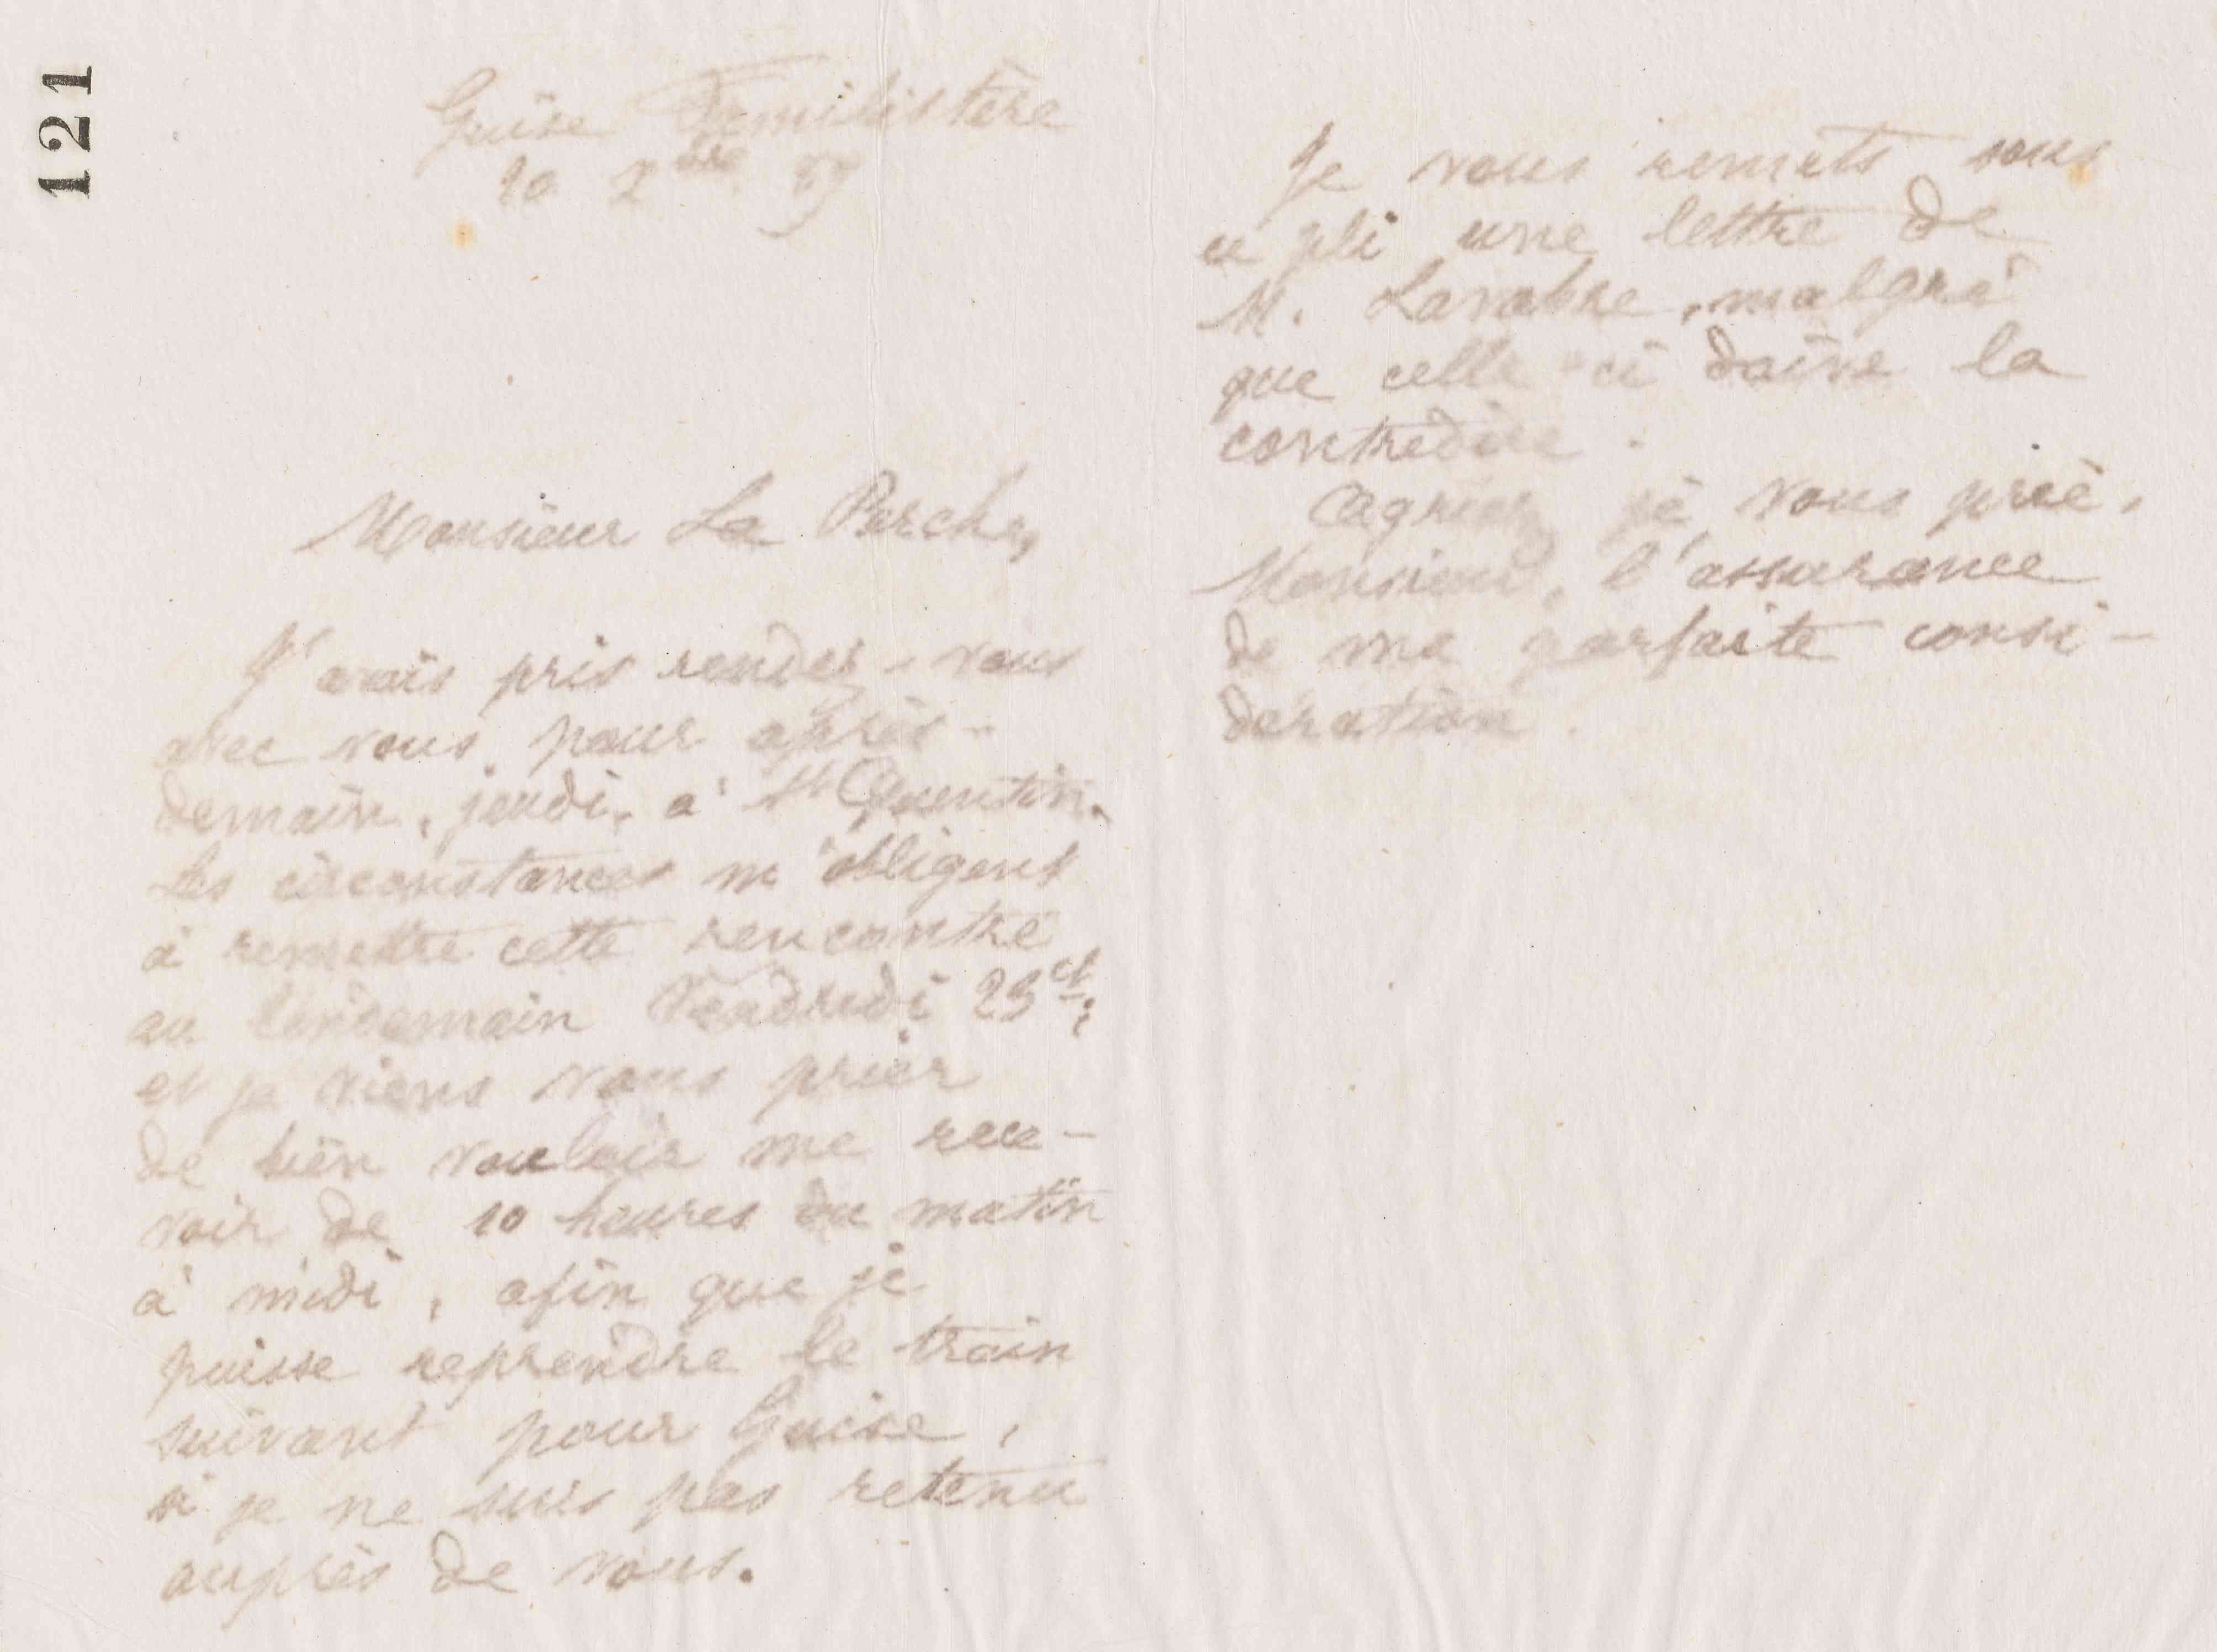 121
Guise Familistère
20 9bre 89
Monsieur La Perche,
J'avais pris rendez-vous
avec vous pour après-
demain, jeudi, à St Quentin.
Les circonstances m'obligent
à remettre cette rencontre
au lendemain Vendredi 23 ct;
et je viens vous prier
de bien vouloir me rece-
voir de 10 heures du matin
à midi, afin que je
puisse reprendre le train
suivant pour Guise,
si je ne suis pas retenu
auprès de vous.
Je vous remets sous
ce pli une lettre de
M. Lavabre, malgré
que celle-ci la
contredire.
Agréez je vous prie,
Monsieur, l'assurance
de ma parfaite consi-
dération.